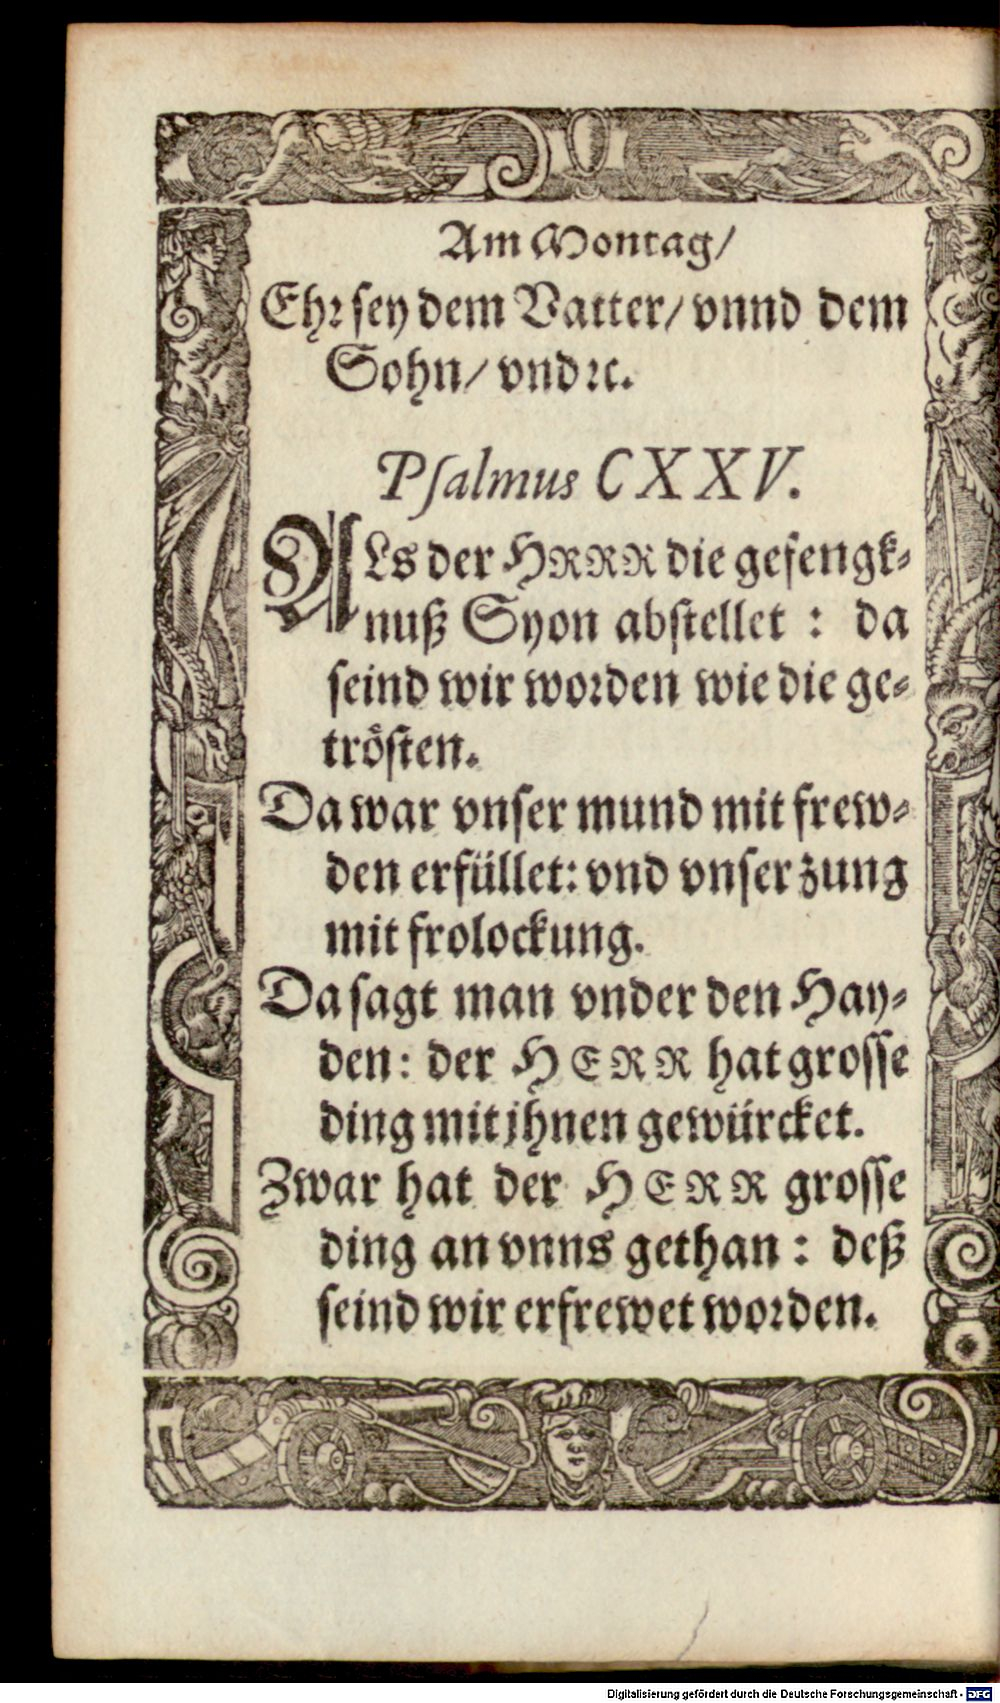 Am Montag/
Ehr sey dem Vatter/ vnnd dem
Sohn/ vnd ꝛc.
Psalmus CXXV.
ALs der HRRR die gefengk⸗
nuß Syon abstellet : da
seind wir worden wie die ge⸗
trösten.
Da war vnser mund mit frew⸗
den erfüllet: vnd vnser zung
mit frolockung.
Da sagt man vnder den Hay⸗
den: der HERR hat grosse
ding mit jhnen gewürcket.
Zwar hat der HERR grosse
ding an vnns gethan : deß
seind wir erfrewet worden.
Digitalisierung gefördert durch die Deutsche Forschungsgemeinschaft - DFG